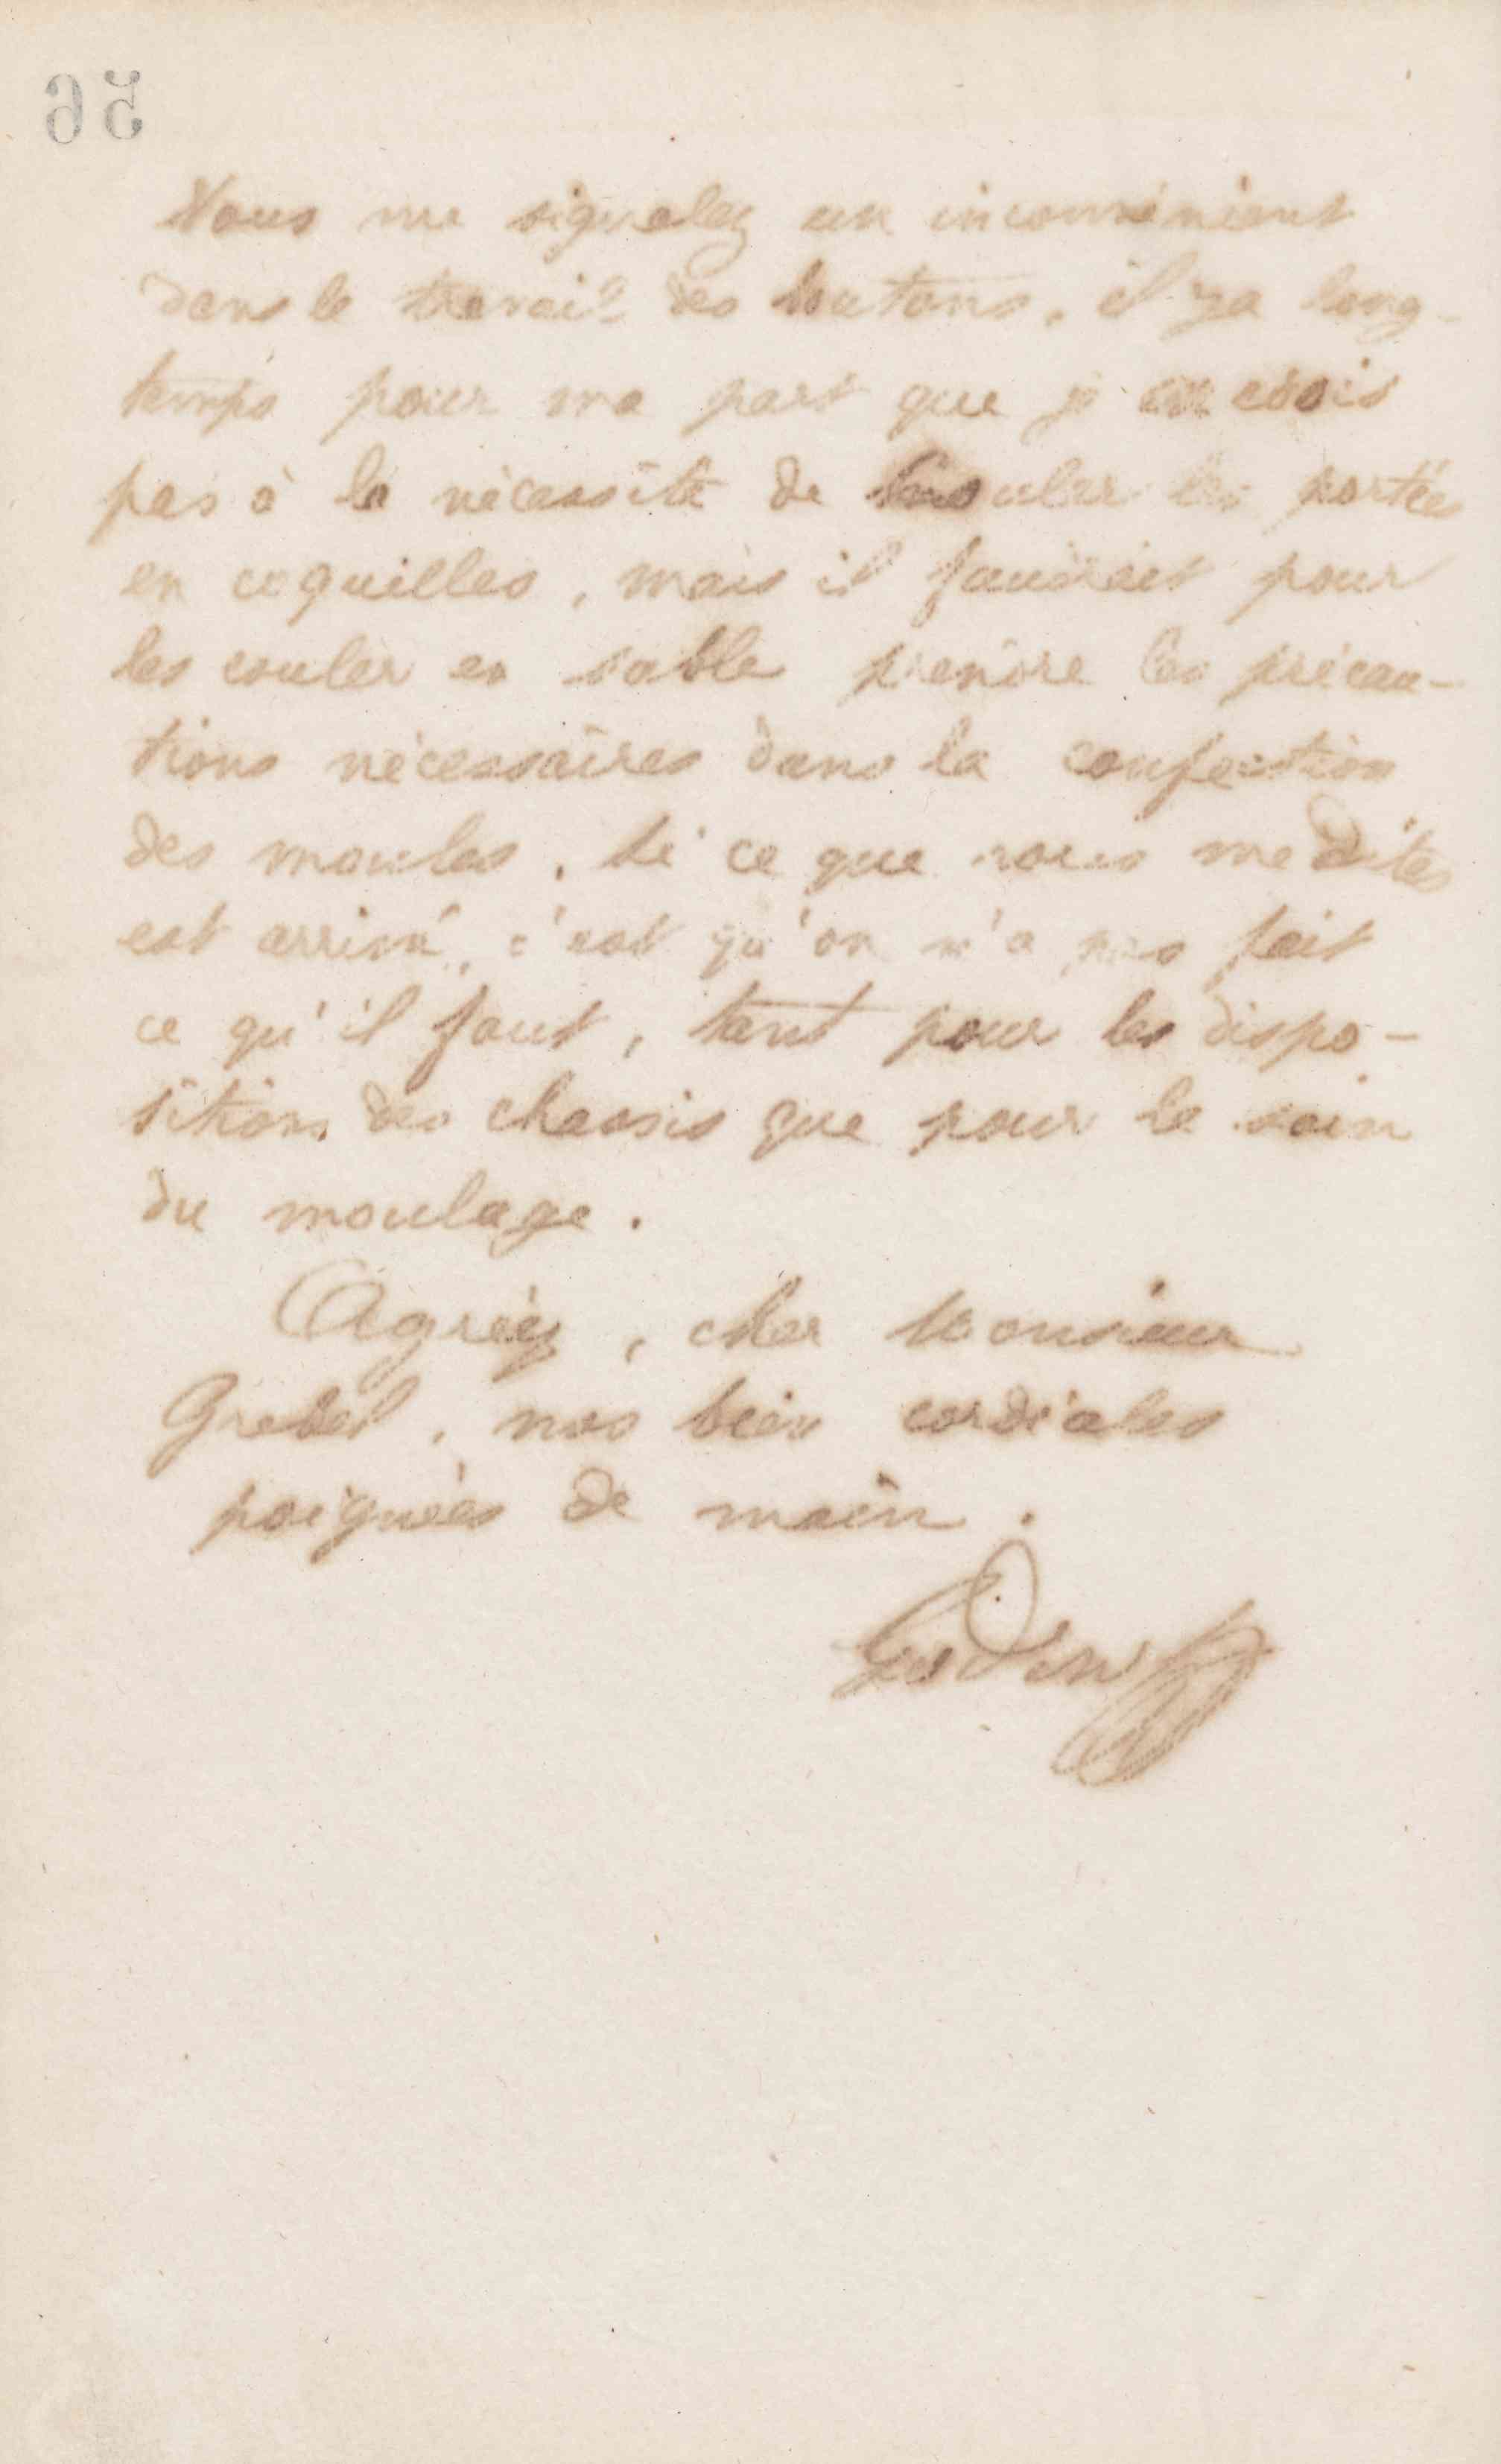 56
Vous me signalez un inconvénient
dans le travail des boutons, il y a long-
temps pour ma part que je ne crois
pas à la nécessité de mouler les portées
en coquilles, mais il faudrait pour
les couler en sable prendre les précau-
tions nécessaires dans la confection
des moules. Si ce que vous me dites
est arrivé, c'est qu'on n'a pas fait
ce qu'il faut, tant pour les dispo-
sitions des chassis que pour le soin
du moulage.
Agréez, cher Monsieur
Grebel, nos bien cordiales
poignées de main.
Godin